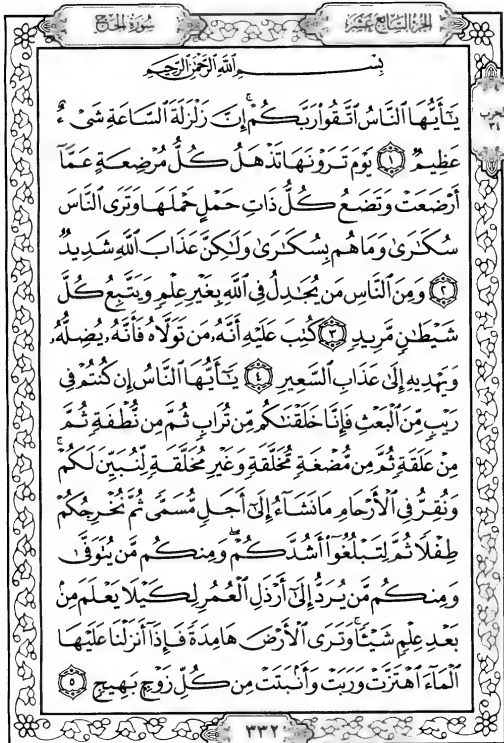 الجزء السابع عشر
سورة الحج
بِسْمِ اللَّهِ الرَّحْمَٰنِ الرَّحِيمِ
يَـٰٓأَيُّهَا ٱلنَّاسُ ٱتَّقُوا۟ رَبَّكُمْ ۚ إِنَّ زَلْزَلَةَ ٱلسَّاعَةِ شَىْءٌ
عَظِيمٌ ١ يَوْمَ تَرَوْنَهَا تَذْهَلُ كُلُّ مُرْضِعَةٍ عَمَّآ
أَرْضَعَتْ وَتَضَعُ كُلُّ ذَاتِ حَمْلٍ حَمْلَهَا وَتَرَى ٱلنَّاسَ
سُكَـٰرَىٰ وَمَا هُم بِسُكَـٰرَىٰ وَلَـٰكِنَّ عَذَابَ ٱللَّهِ شَدِيدٌ
٢ وَمِنَ ٱلنَّاسِ مَن يُجَـٰدِلُ فِى ٱللَّهِ بِغَيْرِ عِلْمٍ وَيَتَّبِعُ كُلَّ
شَيْطَـٰنٍ مَّرِيدٍ ٣ كُتِبَ عَلَيْهِ أَنَّهُۥ مَن تَوَلَّاهُ فَأَنَّهُۥ يُضِلُّهُۥ
وَيَهْدِيهِ إِلَىٰ عَذَابِ ٱلسَّعِيرِ ٤ يَـٰٓأَيُّهَا ٱلنَّاسُ إِن كُنتُمْ فِى
رَيْبٍ مِّنَ ٱلْبَعْثِ فَإِنَّا خَلَقْنَـٰكُم مِّن تُرَابٍ ثُمَّ مِن نُّطْفَةٍ ثُمَّ
مِنْ عَلَقَةٍ ثُمَّ مِن مُّضْغَةٍ مُّخَلَّقَةٍ وَغَيْرِ مُخَلَّقَةٍ لِّنُبَيِّنَ لَكُمْ ۚ
وَنُقِرُّ فِى ٱلْأَرْحَامِ مَا نَشَآءُ إِلَىٰٓ أَجَلٍ مُّسَمًّى ثُمَّ نُخْرِجُكُمْ
طِفْلًا ثُمَّ لِتَبْلُغُوٓا۟ أَشُدَّكُمْ ۖ وَمِنكُم مَّن يُتَوَفَّىٰ
وَمِنكُم مَّن يُرَدُّ إِلَىٰٓ أَرْذَلِ ٱلْعُمُرِ لِكَيْلَا يَعْلَمَ مِنۢ
بَعْدِ عِلْمٍ شَيْـًٔا ۚ وَتَرَى ٱلْأَرْضَ هَامِدَةً فَإِذَآ أَنزَلْنَا عَلَيْهَا
ٱلْمَآءَ ٱهْتَزَّتْ وَرَبَتْ وَأَنۢبَتَتْ مِن كُلِّ زَوْجٍۭ بَهِيجٍ ٥
٣٣٢